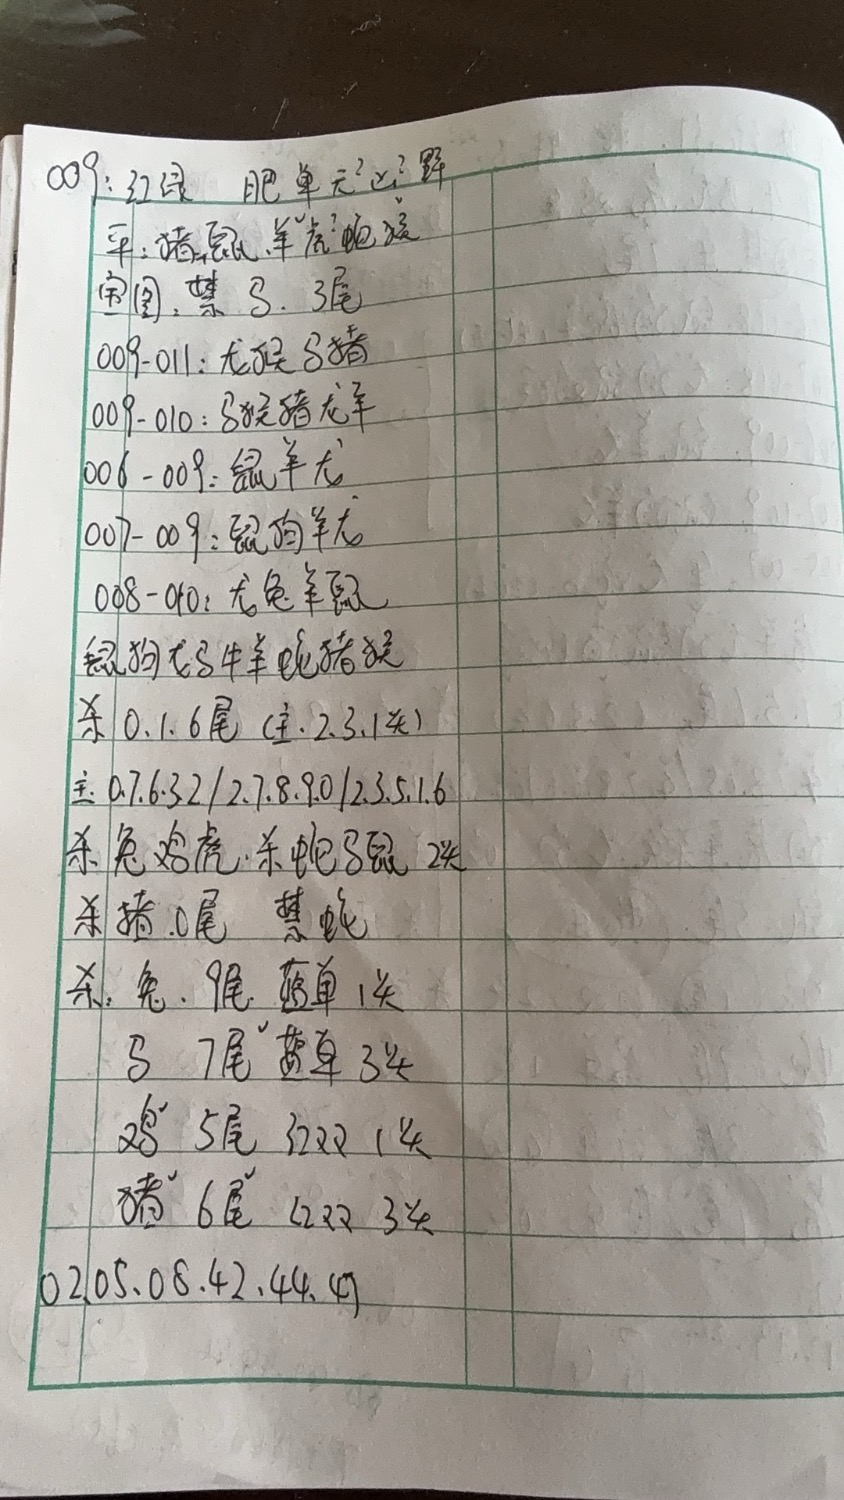 009:红绿 肥单天?凶?野
平:猪.鼠.羊虎?蛇猴
宝图:禁马.3尾
009-011:龙猴马猪
009-010:马猴猪龙羊
006-009:鼠羊龙
007-009:鼠狗羊龙
008-010:龙兔羊鼠
鼠狗龙马牛羊蛇猪猴
杀0.1.6尾(主.2.3.1头)
主0.7.6.3.2/2.7.8.9.0/2.3.5.1.6
杀兔鸡虎.杀蛇马鼠2头
杀猪.0尾 禁蛇
杀:兔.9尾.蓝单1头
马 7尾 蓝单3头
鸡 5尾 红双1头
猪 6尾 红双3头
02.05.08.42.44.49